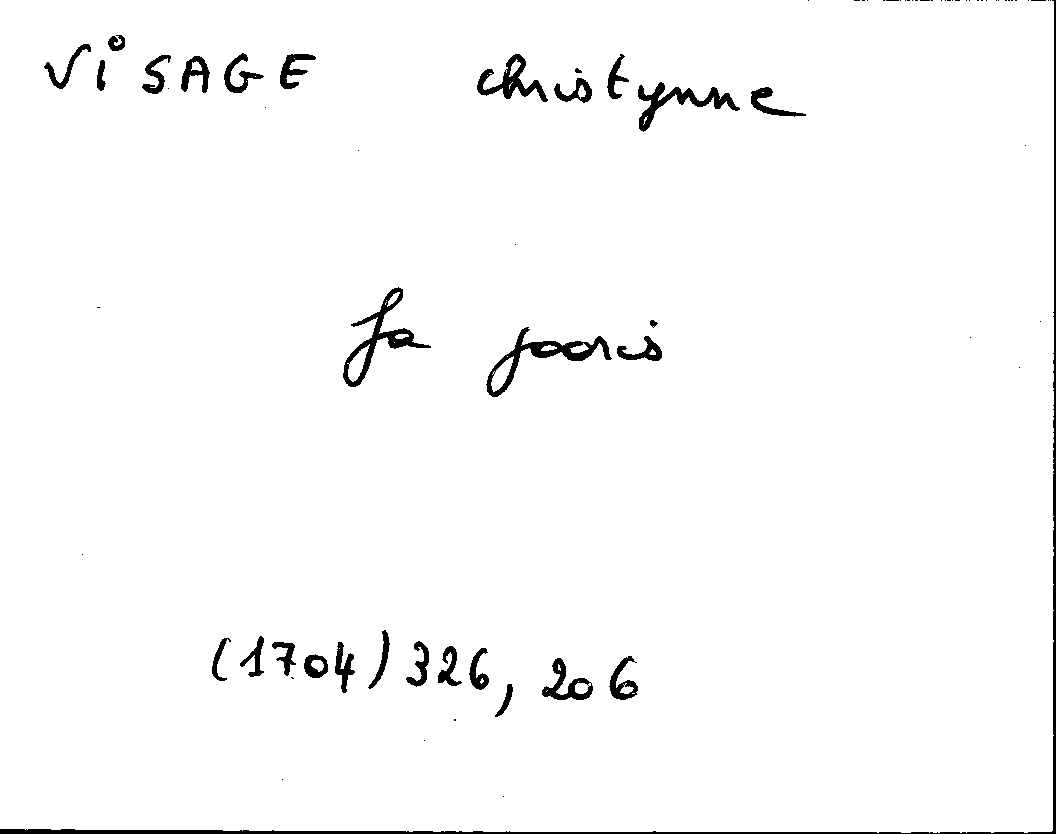 VISAGE christynne
fa fooris
(1704) 326, 206